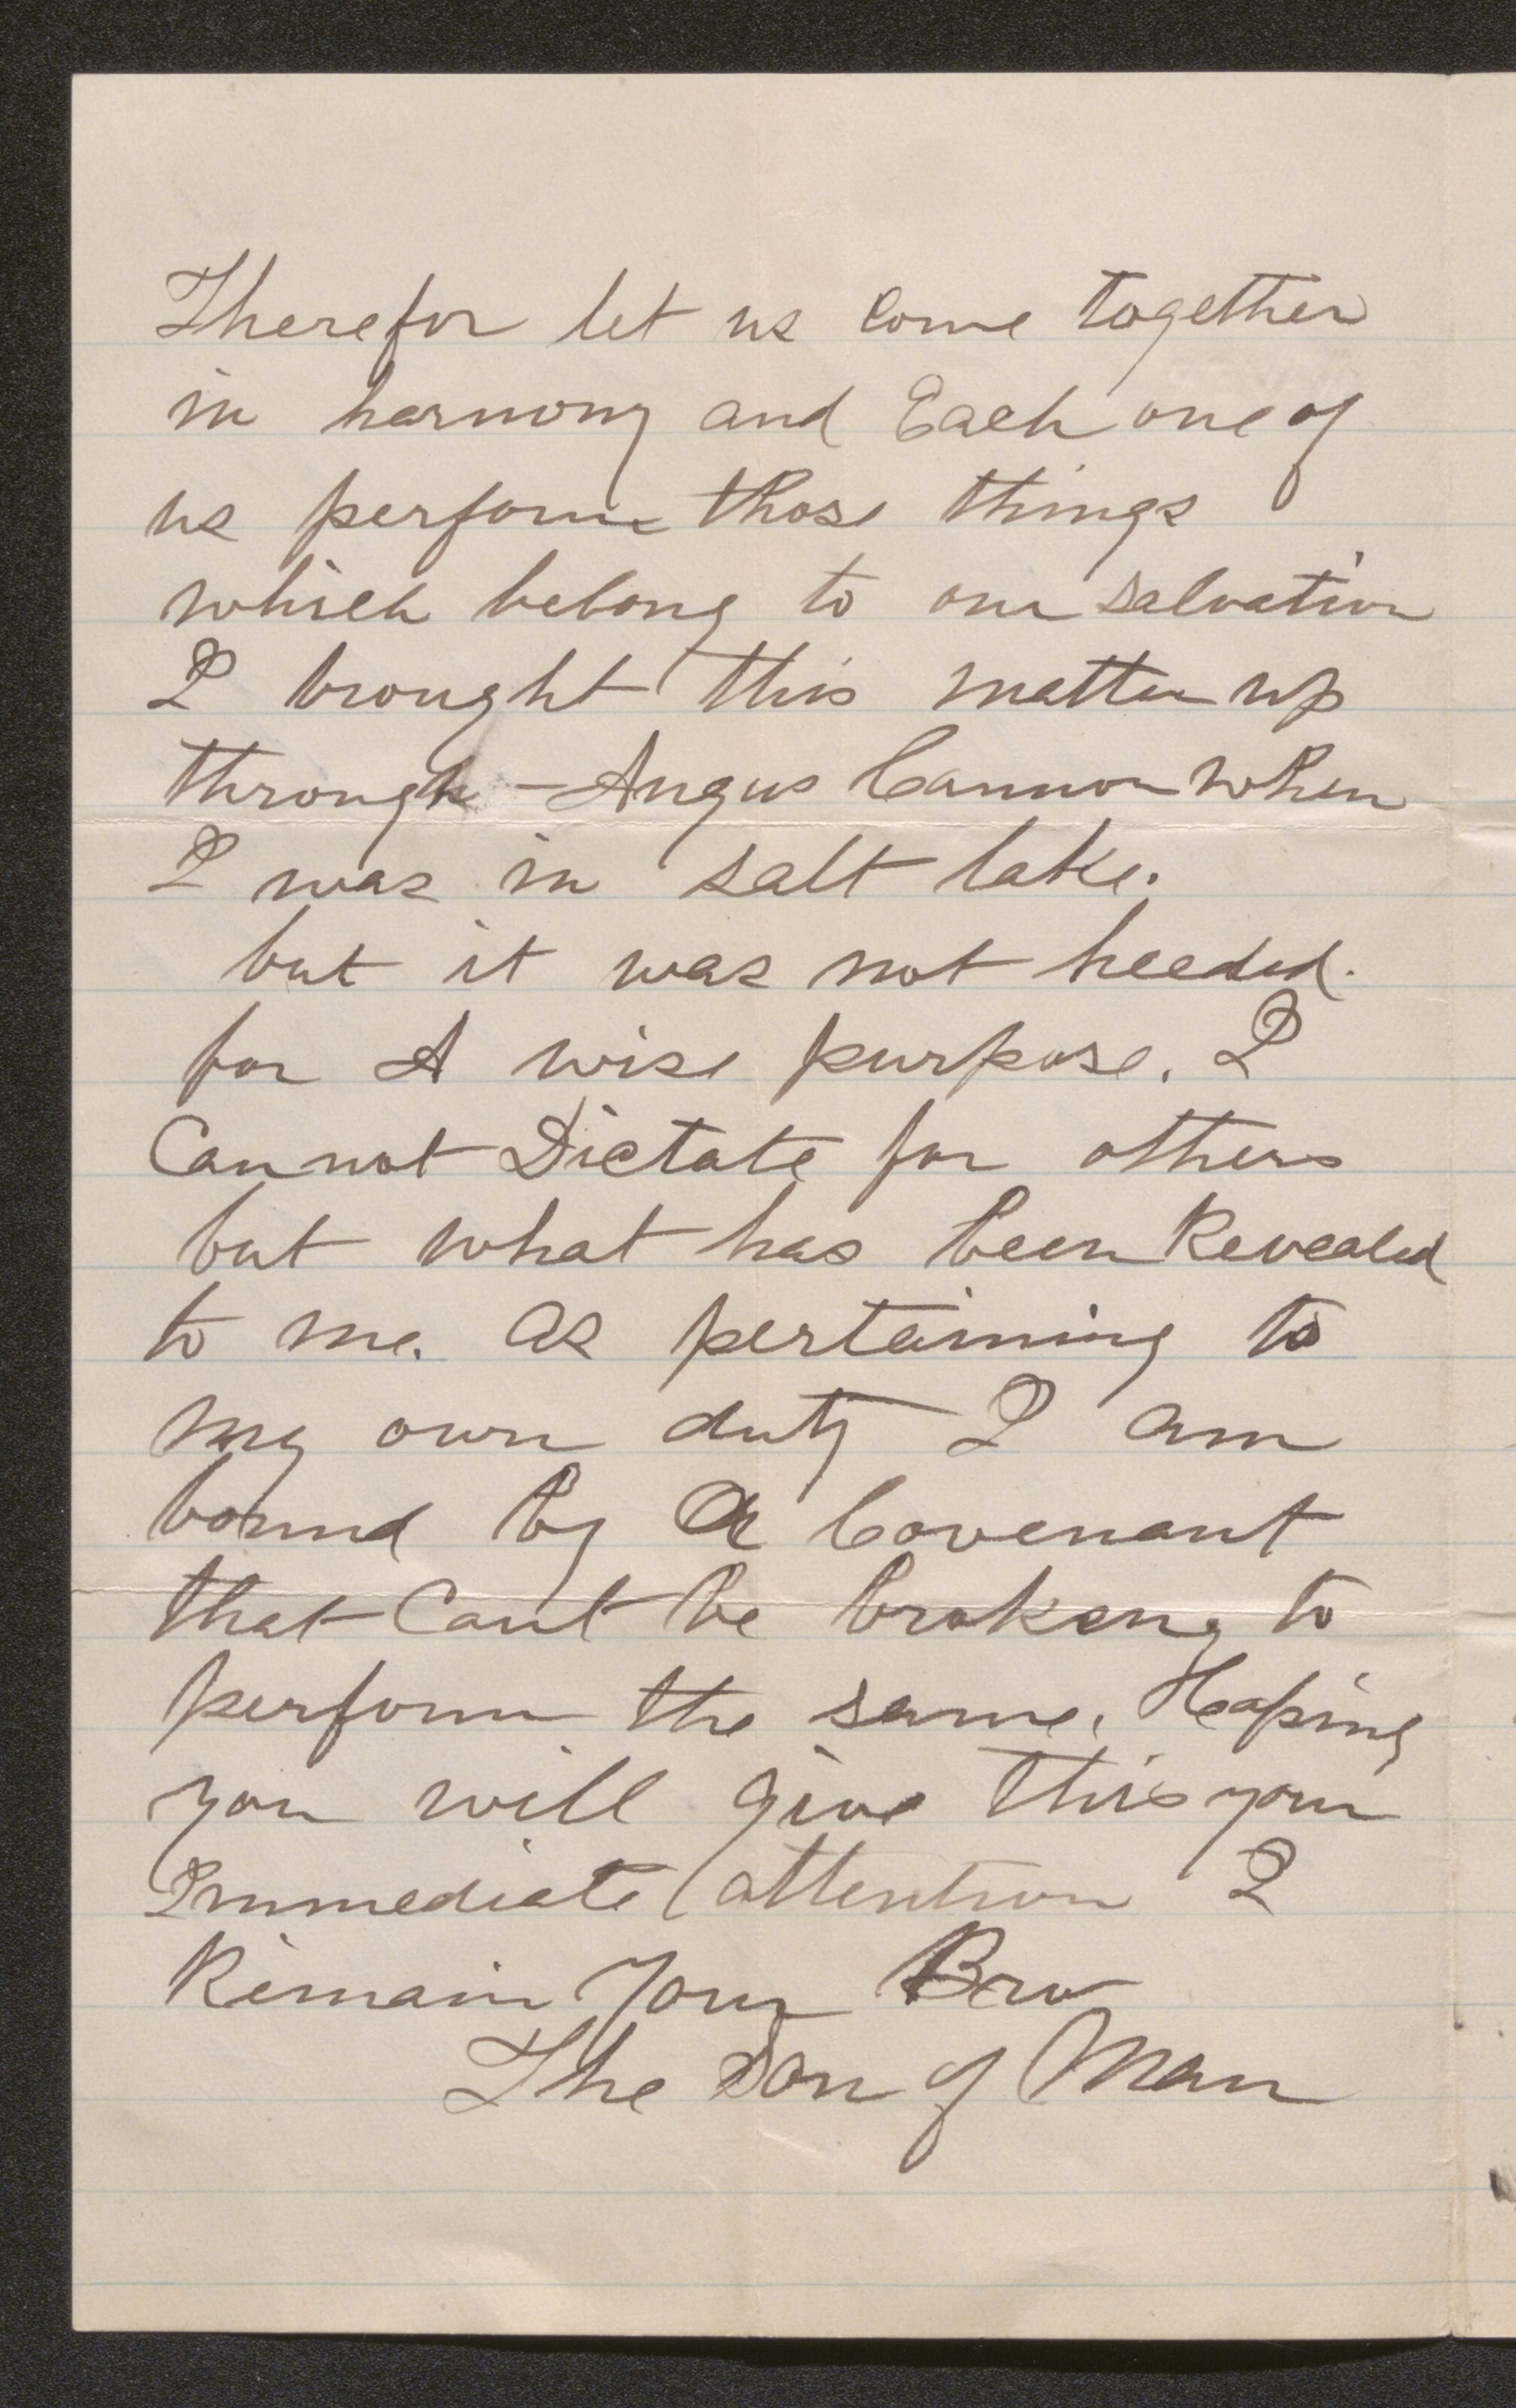 Therefor let us come together
in harmony and Each one of
us perform those things
which belong to our salvation
I brought this matter up
through Angus Cannon when
I was in salt lake.
but it was not heeded.
for A wise purpose. I
Cannot Dictate for others
but what has been Revealed
to me. as pertaining to
my own duty I am
bound by A Covenant
that Cant be broken, to
perform the same. Hoping
you will give this your
Immediate attention I
Remain Your Bro
The Son of Man